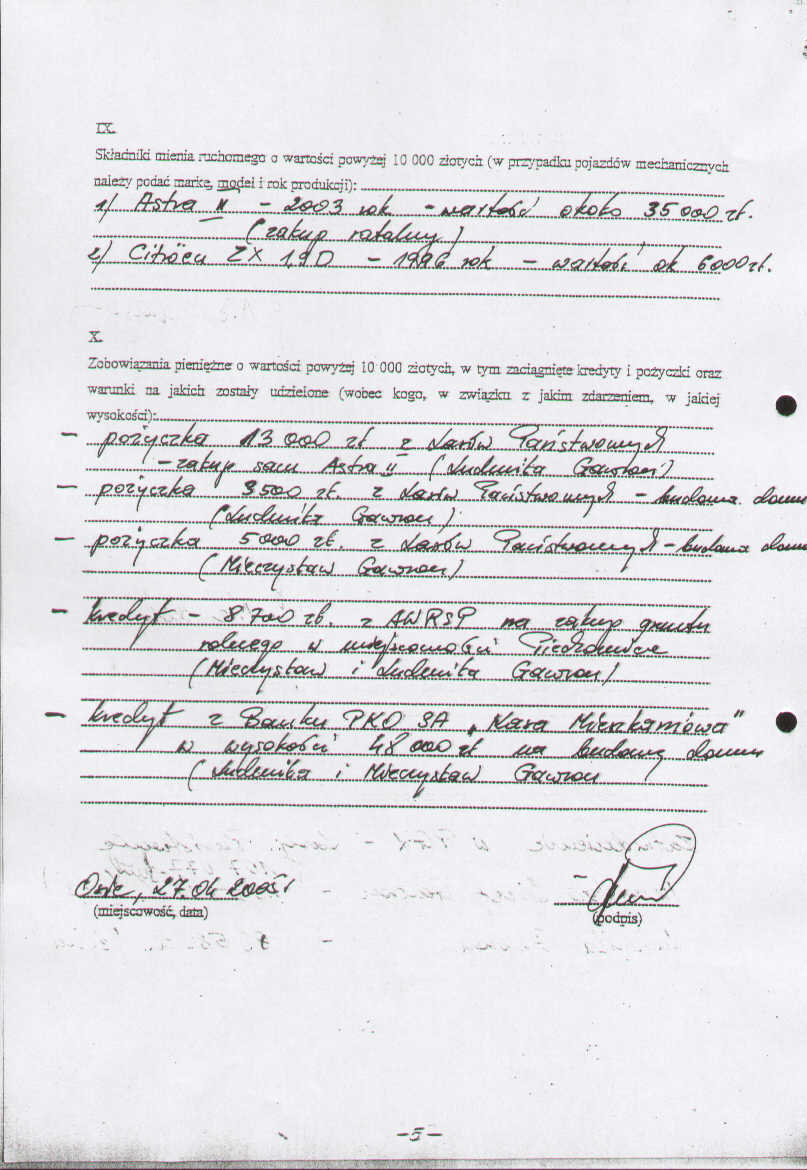 IX.
Składniki mienia ruchomego o wartości powyżej 10 000 złotych (w przypadku pojazdów mechanicznych
należy podać markę, model i rok produkcji):
1/ Astra II - 2003 rok - wartość około 35 000 zł.
(zakup ratalny)
2/ Citröen ZX 1,9D - 1996 rok - wartość ok 6000 zł.
X.
Zobowiązania pieniężne o wartości powyżej 10 000 złotych, w tym zaciągnięte kredyty i pożyczki oraz
warunki na jakich zostały udzielone (wobec kogo, w związku z jakim zdarzeniem, w jakiej
wysokości):
- pożyczka 13 000 zł z Lasów Państwowych
- zakup sam Astra II (Ludmiła Gawron)
- pożyczka 3500 zł. z Lasów Państwowych - budowa domu
(Ludmiła Gawron)
- pożyczka 5000 zł. z Lasów Państwowych - budowa domu
(Mieczysław Gawron)
- kredyt - 8 700 zł. z AWRSP na zakup gruntu
rolnego w miejscowości
(Mieczysław i Ludmiła Gawron)
- kredyt z Banku PKO SA
w wysokości 48 000 zł na budowę domu
(Ludmiła i Mieczysław Gawron
Osie, 27.04.2005r
(miejscowość, data)
(podpis)
-5-